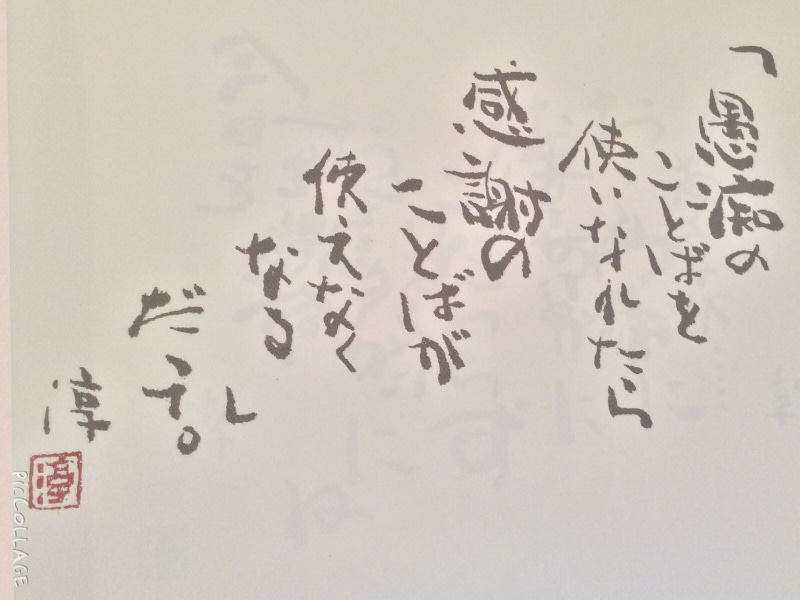 「愚痴の
ことばを
使いなれたら
感謝の
ことばが
使えなく
なる」
だって。
淳
PICCOLLAGE